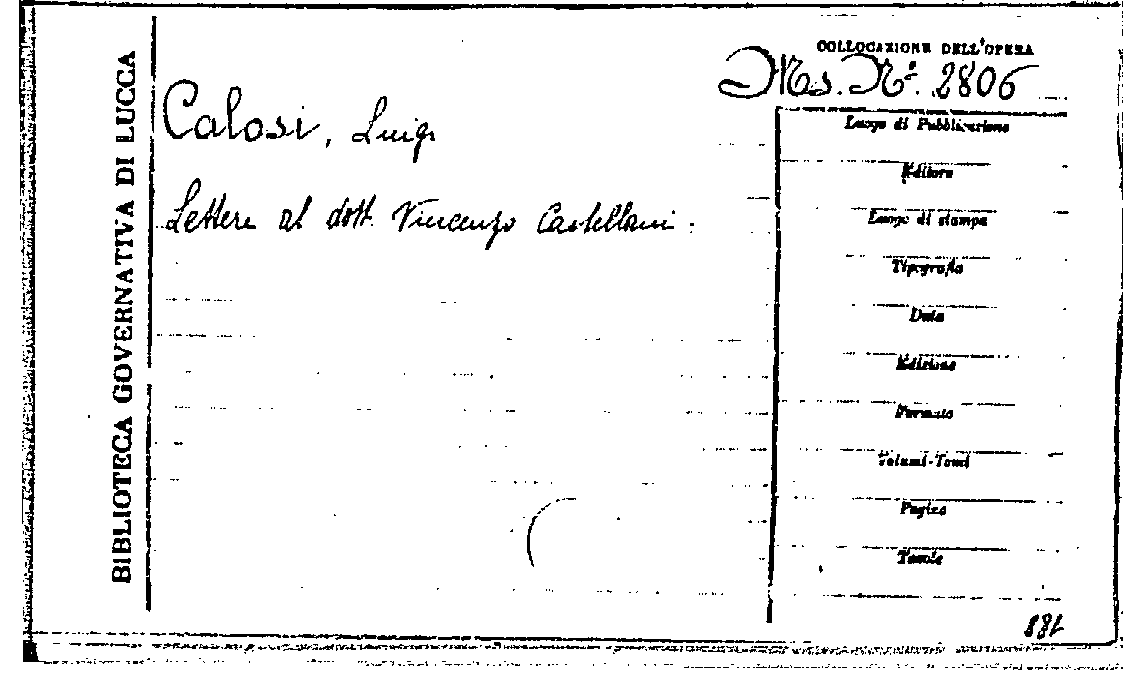 BIBLIOTECA GOVERNATIVA DI LUCCA
COLLOCAZIONE DELL'OPERA
Ms. N.º 2806
Calosi, Luigi
Lettere al dott. Vincenzo Castellani.
Luogo di Pubblicazione
Editore
Luogo di stampa
Tipografia
Data
Edizione
Formato
Volumi-Tomi
Pagine
Tavole